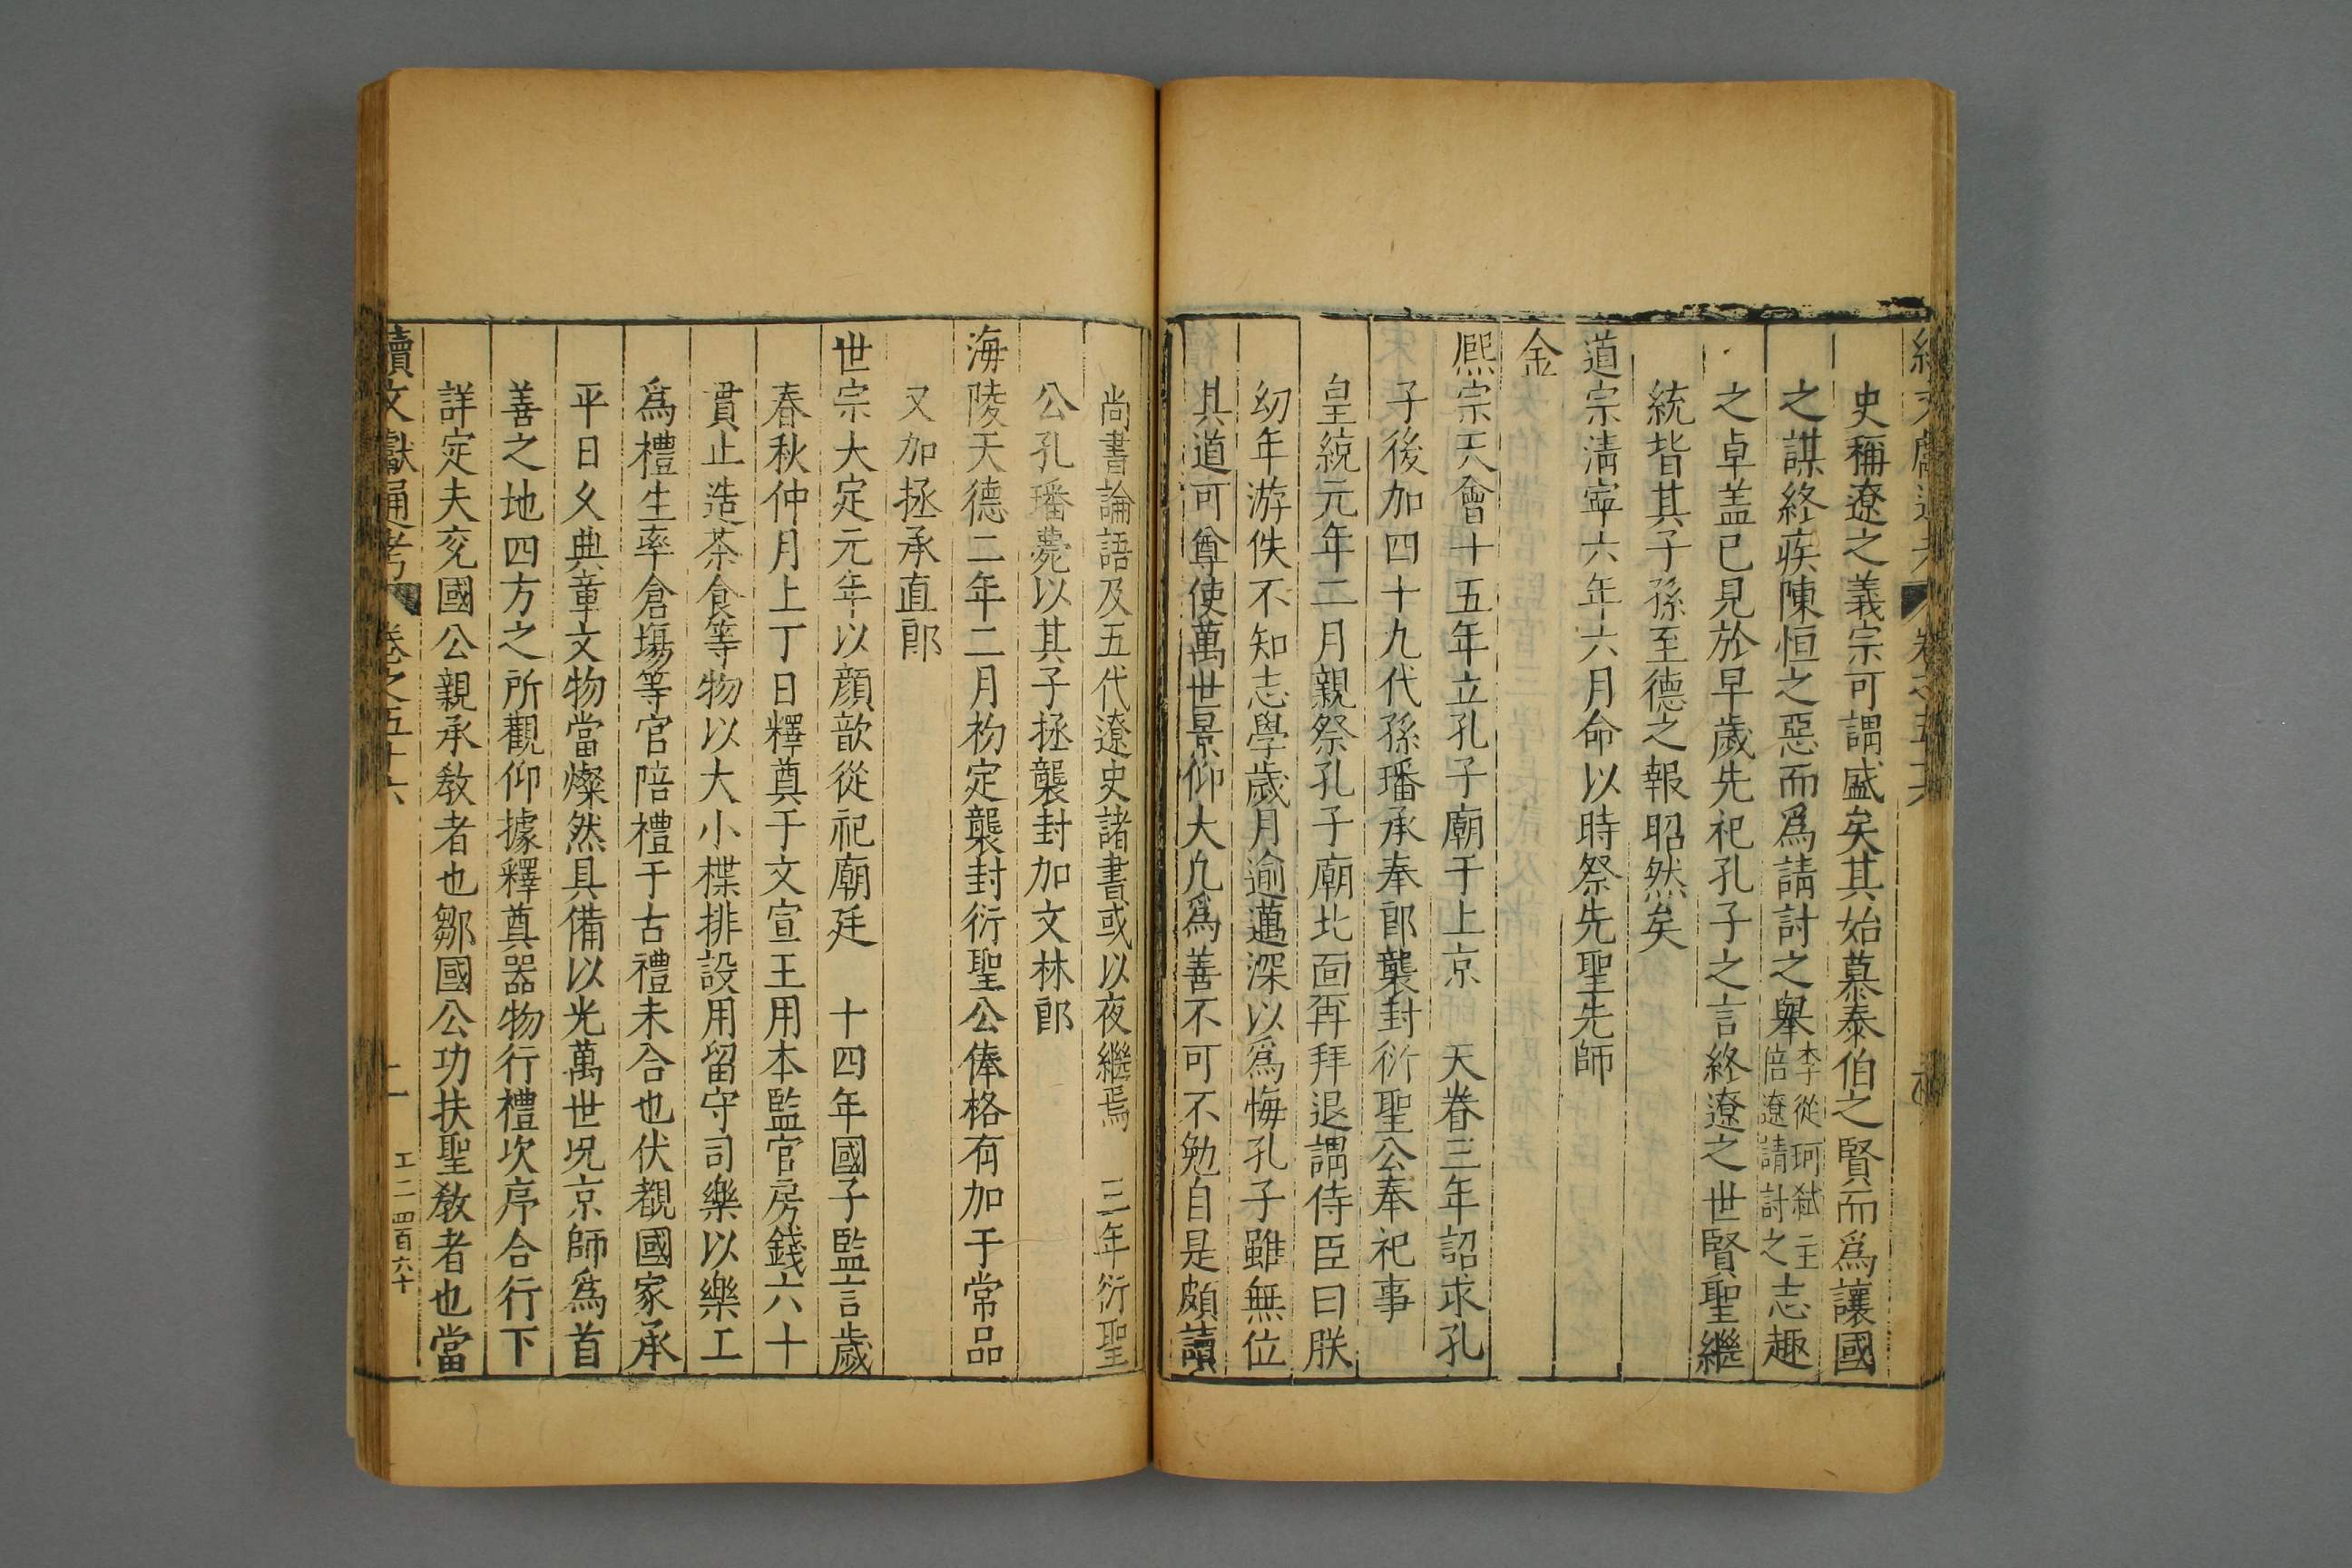 史稱遼之義宗可謂盛矣其始慕泰伯之賢而爲讓國
之謀終疾陳恒之惡而爲請討之舉李從珂弑主倍遼請討之志趣
之卓盖已見於早歲先祀孔子之言終遼之世賢聖繼
統皆其子孫至德之報昭然矣
道宗淸寧六年六月命以時祭先聖先師
金
熈宗天會十五年立孔子廟于上京 天眷三年詔求孔
子後加四十九代孫璠承奉郎襲封衍聖公奉祀事
皇統元年二月親祭孔子廟北面再拜退謂侍臣曰朕
幼年游佚不知志學歲月逾邁深以爲悔孔子雖無位
其道可尊使萬世景仰大凢爲善不可不勉自是頗讀
尚書論語及五代遼史諸書或以夜繼焉 三年衍聖
公孔璠薨以其子拯襲封加文林郎
海陵天德二年二月初定襲封衍聖公俸格有加于常品
又加拯承直郎
世宗大定元年以顔歆從祀廟廷 十四年國子監言歲
春秋仲月上丁日釋奠于文宣王用本監官房錢六十
貫止造茶食等物以大小楪排設用留守司樂以樂工
爲禮生率倉塲等官陪禮于古禮未合也伏覩國家承
平日乆典章文物當燦然具備以光萬世况京師爲首
善之地四方之所觀仰據釋奠器物行禮次序合行下
詳定夫兖國公親承敎者也鄒國公功扶聖敎者也當
續文獻通考 卷之五十六 二 工二四百六十